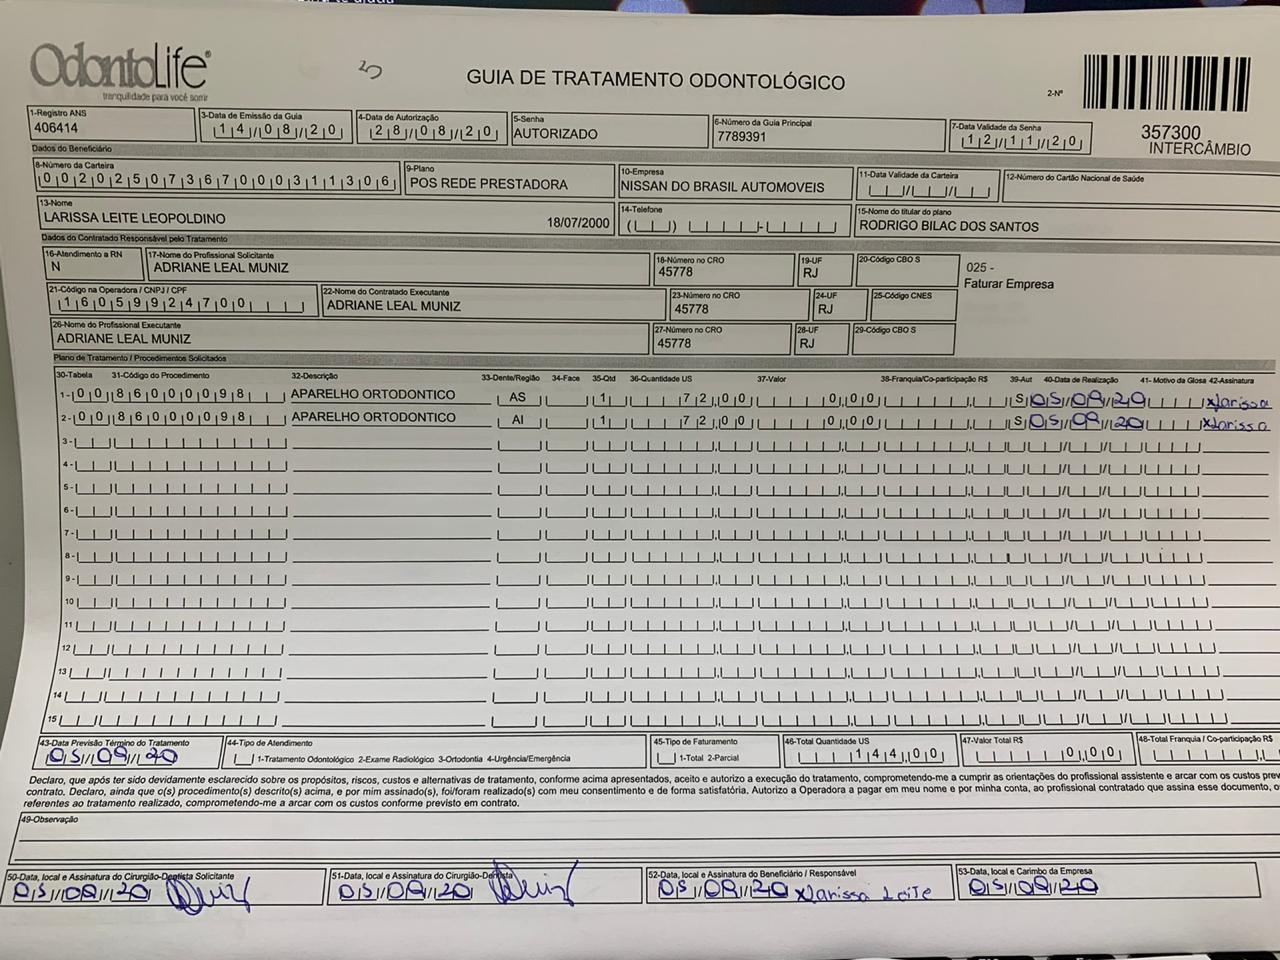 OdontoLife®
tranquilidade para você sorrir
GUIA DE TRATAMENTO ODONTOLÓGICO
2-Nº
357300
INTERCÂMBIO
1-Registro ANS
406414
3-Data de Emissão da Guia
14/08/20
4-Data de Autorização
28/08/20
5-Senha
AUTORIZADO
6-Número da Guia Principal
7789391
7-Data Validade da Senha
12/11/20
Dados do Beneficiário
8-Número da Carteira
00202507367000311306
9-Plano
POS REDE PRESTADORA
10-Empresa
NISSAN DO BRASIL AUTOMOVEIS
11-Data Validade da Carteira
12-Número do Cartão Nacional de Saúde
13-Nome
LARISSA LEITE LEOPOLDINO 18/07/2000
14-Telefone
15-Nome do titular do plano
RODRIGO BILAC DOS SANTOS
Dados do Contratado Responsável pelo Tratamento
16-Atendimento a RN
N
17-Nome do Profissional Solicitante
ADRIANE LEAL MUNIZ
18-Número no CRO
45778
19-UF
RJ
20-Código CBO S
025 -
Faturar Empresa
21-Código na Operadora / CNPJ / CPF
16059924700
22-Nome do Contratado Executante
ADRIANE LEAL MUNIZ
23-Número no CRO
45778
24-UF
RJ
25-Código CNES
26-Nome do Profissional Executante
ADRIANE LEAL MUNIZ
27-Número no CRO
45778
28-UF
RJ
29-Código CBO S
Plano de Tratamento / Procedimentos Solicitados
30-Tabela 31-Código do Procedimento 32-Descrição 33-Dente/Região 34-Face 35-Qtd 36-Quantidade US 37-Valor 38-Franquia/Co-participação R$ 39-Aut 40-Data de Realização 41- Motivo da Glosa 42-Assinatura
1- 00 86000098 APARELHO ORTODONTICO AS 1 72,00 0,00 S 05/09/20 xLarissa
2- 00 86000098 APARELHO ORTODONTICO AI 1 72,00 0,00 S 05/09/20 xLarissa
3-
4-
5-
6-
7-
8-
9-
10
11
12
13
14
15
43-Data Previsão Término do Tratamento
05/09/20
44-Tipo de Atendimento
1-Tratamento Odontológico 2-Exame Radiológico 3-Ortodontia 4-Urgência/Emergência
45-Tipo de Faturamento
1-Total 2-Parcial
46-Total Quantidade US
144,00
47-Valor Total R$
0,00
48-Total Franquia / Co-participação R$
Declaro, que após ter sido devidamente esclarecido sobre os propósitos, riscos, custos e alternativas de tratamento, conforme acima apresentados, aceito e autorizo a execução do tratamento, comprometendo-me a cumprir as orientações do profissional assistente e arcar com os custos prev
contrato. Declaro, ainda que o(s) procedimento(s) descrito(s) acima, e por mim assinado(s), foi/foram realizado(s) com meu consentimento e de forma satisfatória. Autorizo a Operadora a pagar em meu nome e por minha conta, ao profissional contratado que assina esse documento, o
referentes ao tratamento realizado, comprometendo-me a arcar com os custos conforme previsto em contrato.
49-Observação
50-Data, local e Assinatura do Cirurgião-Dentista Solicitante
05/09/20
51-Data, local e Assinatura do Cirurgião-Dentista
05/09/20
52-Data, local e Assinatura do Beneficiário / Responsável
05/09/20 xLarissa Leite
53-Data, local e Carimbo da Empresa
05/09/20